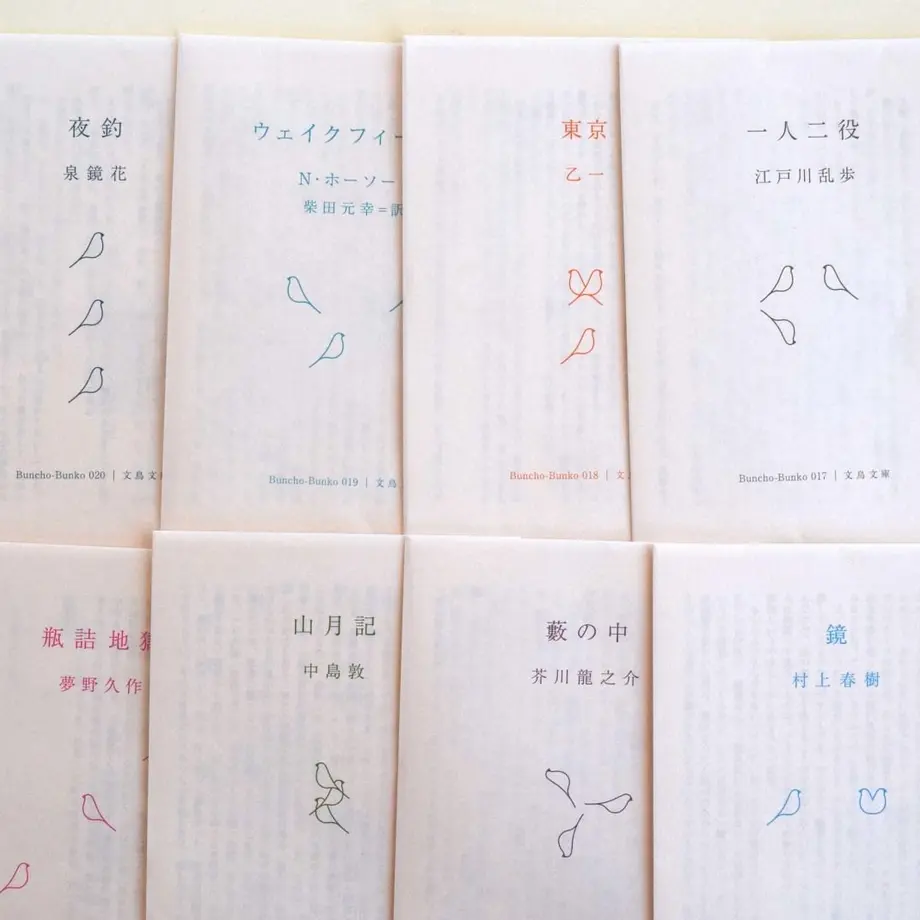 夜釣
泉鏡花
Buncho-Bunko 020 | 文鳥文
ウェイクフィー
N・ホーソー
柴田元幸=訳
Buncho-Bunko 019 | 文鳥
東京
乙一
Buncho-Bunko 018 | 文
一人二役
江戸川乱歩
Buncho-Bunko 017 | 文鳥文庫
瓶詰地獄
夢野久作
山月記
中島敦
藪の中
芥川龍之介
鏡
村上春樹